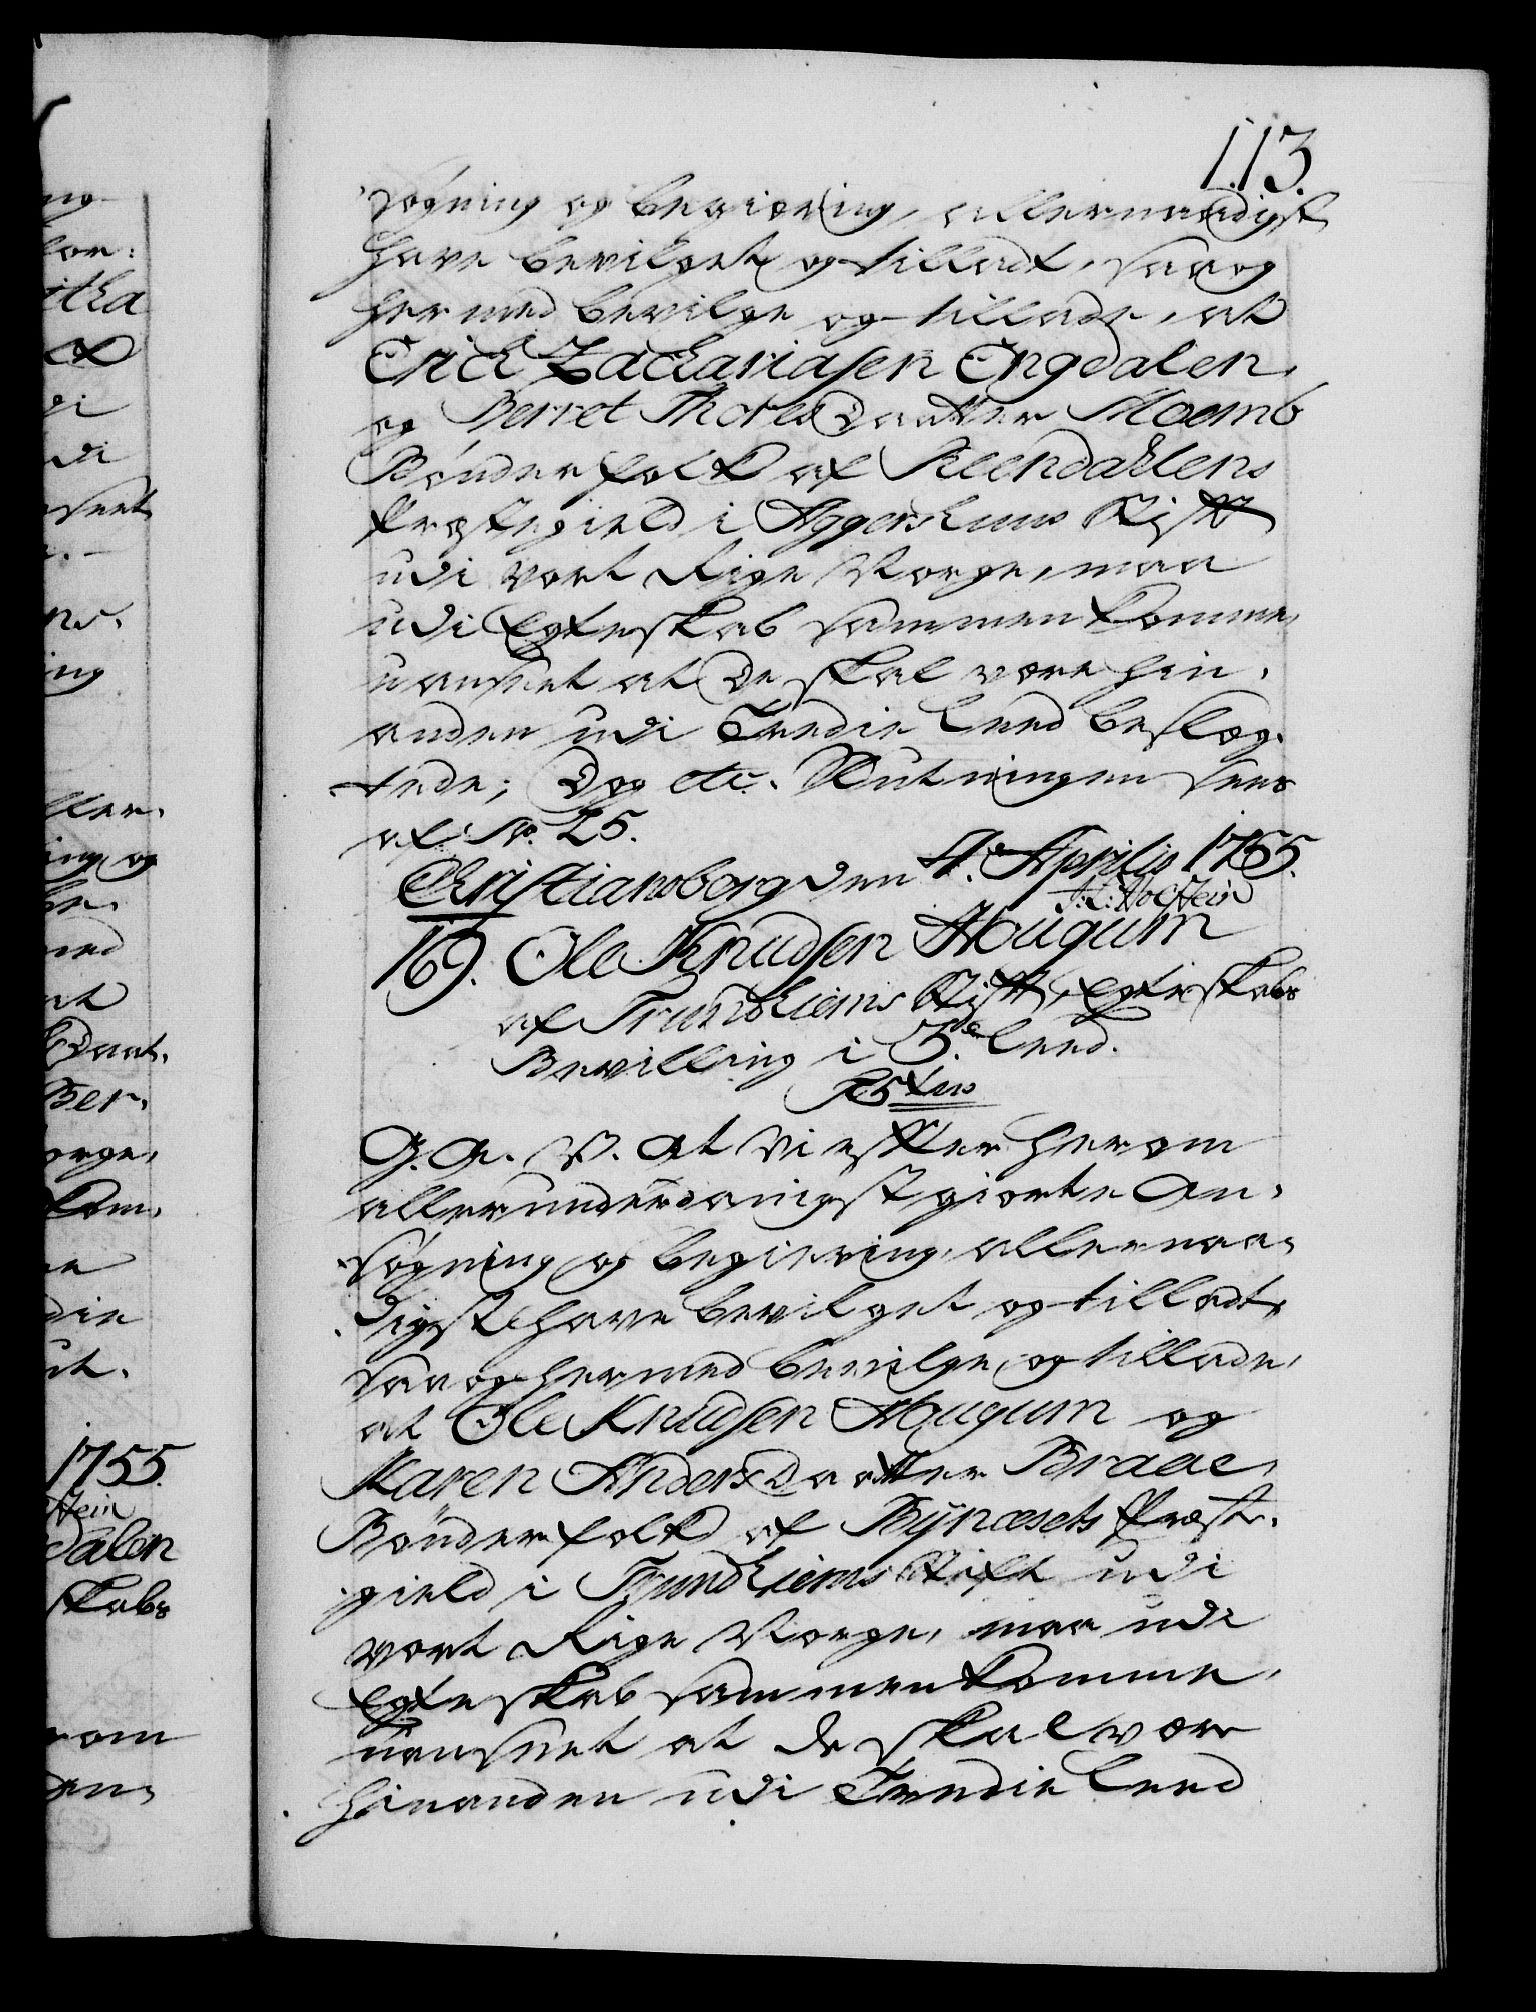 113.
søgning og begiæring, allernaadigst
have bevilget og tilladt, saa og
hermed bevilge og tillade, at
Erich Zachariasen Engdalen,
og Berret Thoresdaatter Moens
Bønderfolk af Reendahlens
Præstegield i Aggershuus Stift
udi vort Rige Norge, maa
udi Egteskab sammenkomme,
uanseet at De skal være hin,
anden udi Tredie Leed beslæg,
tede; Dog etc. Slutningen sees
af No. 25.
Christiansborg den 4. Aprilis 1755.
J. L. Holstein
169. Ole Knudsen Hougum
af Trundhiems Stift, Egteskabs
Bevilling i 3de Leed.
R5ten
G. A. V. At Vi efter herom
allerunderdanigst giorte An,
søgning og begiæring, allernaa,
digst have bevilget og tilladt,
saa og hermed bevilge og tillade,
at Ole Knudsen Hougum og
Karen Andersdaatter Braae,
Bønderfolk af Bynæsets Præste,
gield i Trundhiems Stift udi
vort Rige Norge, maa udi
Egteskab sammenkomme,
uanseet at de skal være
hinanden udi Tredie Leed